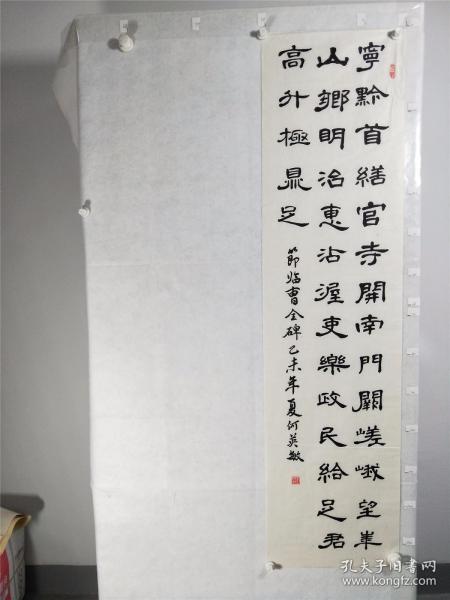 寧黔首繕官寺開南門闕嵯峨望華
山鄉明治惠沾渥吏樂政民給足君
高升極鼎足
節临曹全碑乙未年夏何英敏
孔夫子旧书网
www.kongfz.com